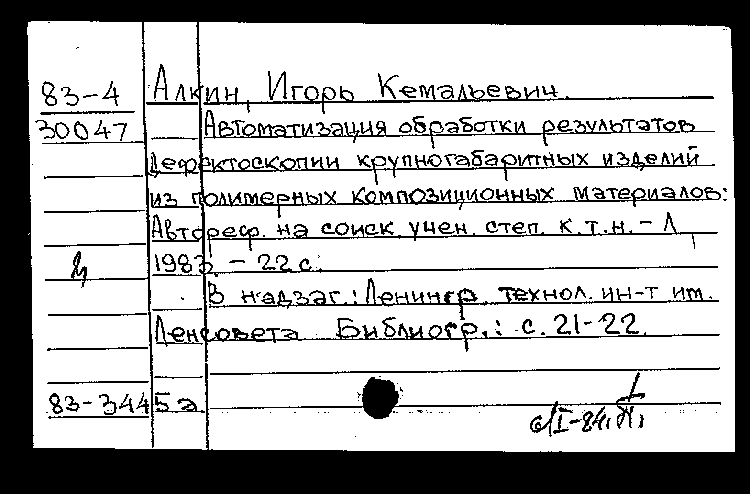 83-4 Алкин, Игорь Кемальевич.
30047 Автоматизация обработки результатов
дефектоскопии крупногабаритных изделий
из полимерных композиционных материалов:
Автореф. на соиск. учен. степ. к.т.н. - Л.,
1983. - 22 с.
В надзаг.: Ленингр. технол. ин-т им.
Ленсовета. Библиогр.: с. 21-22.
83-3445а